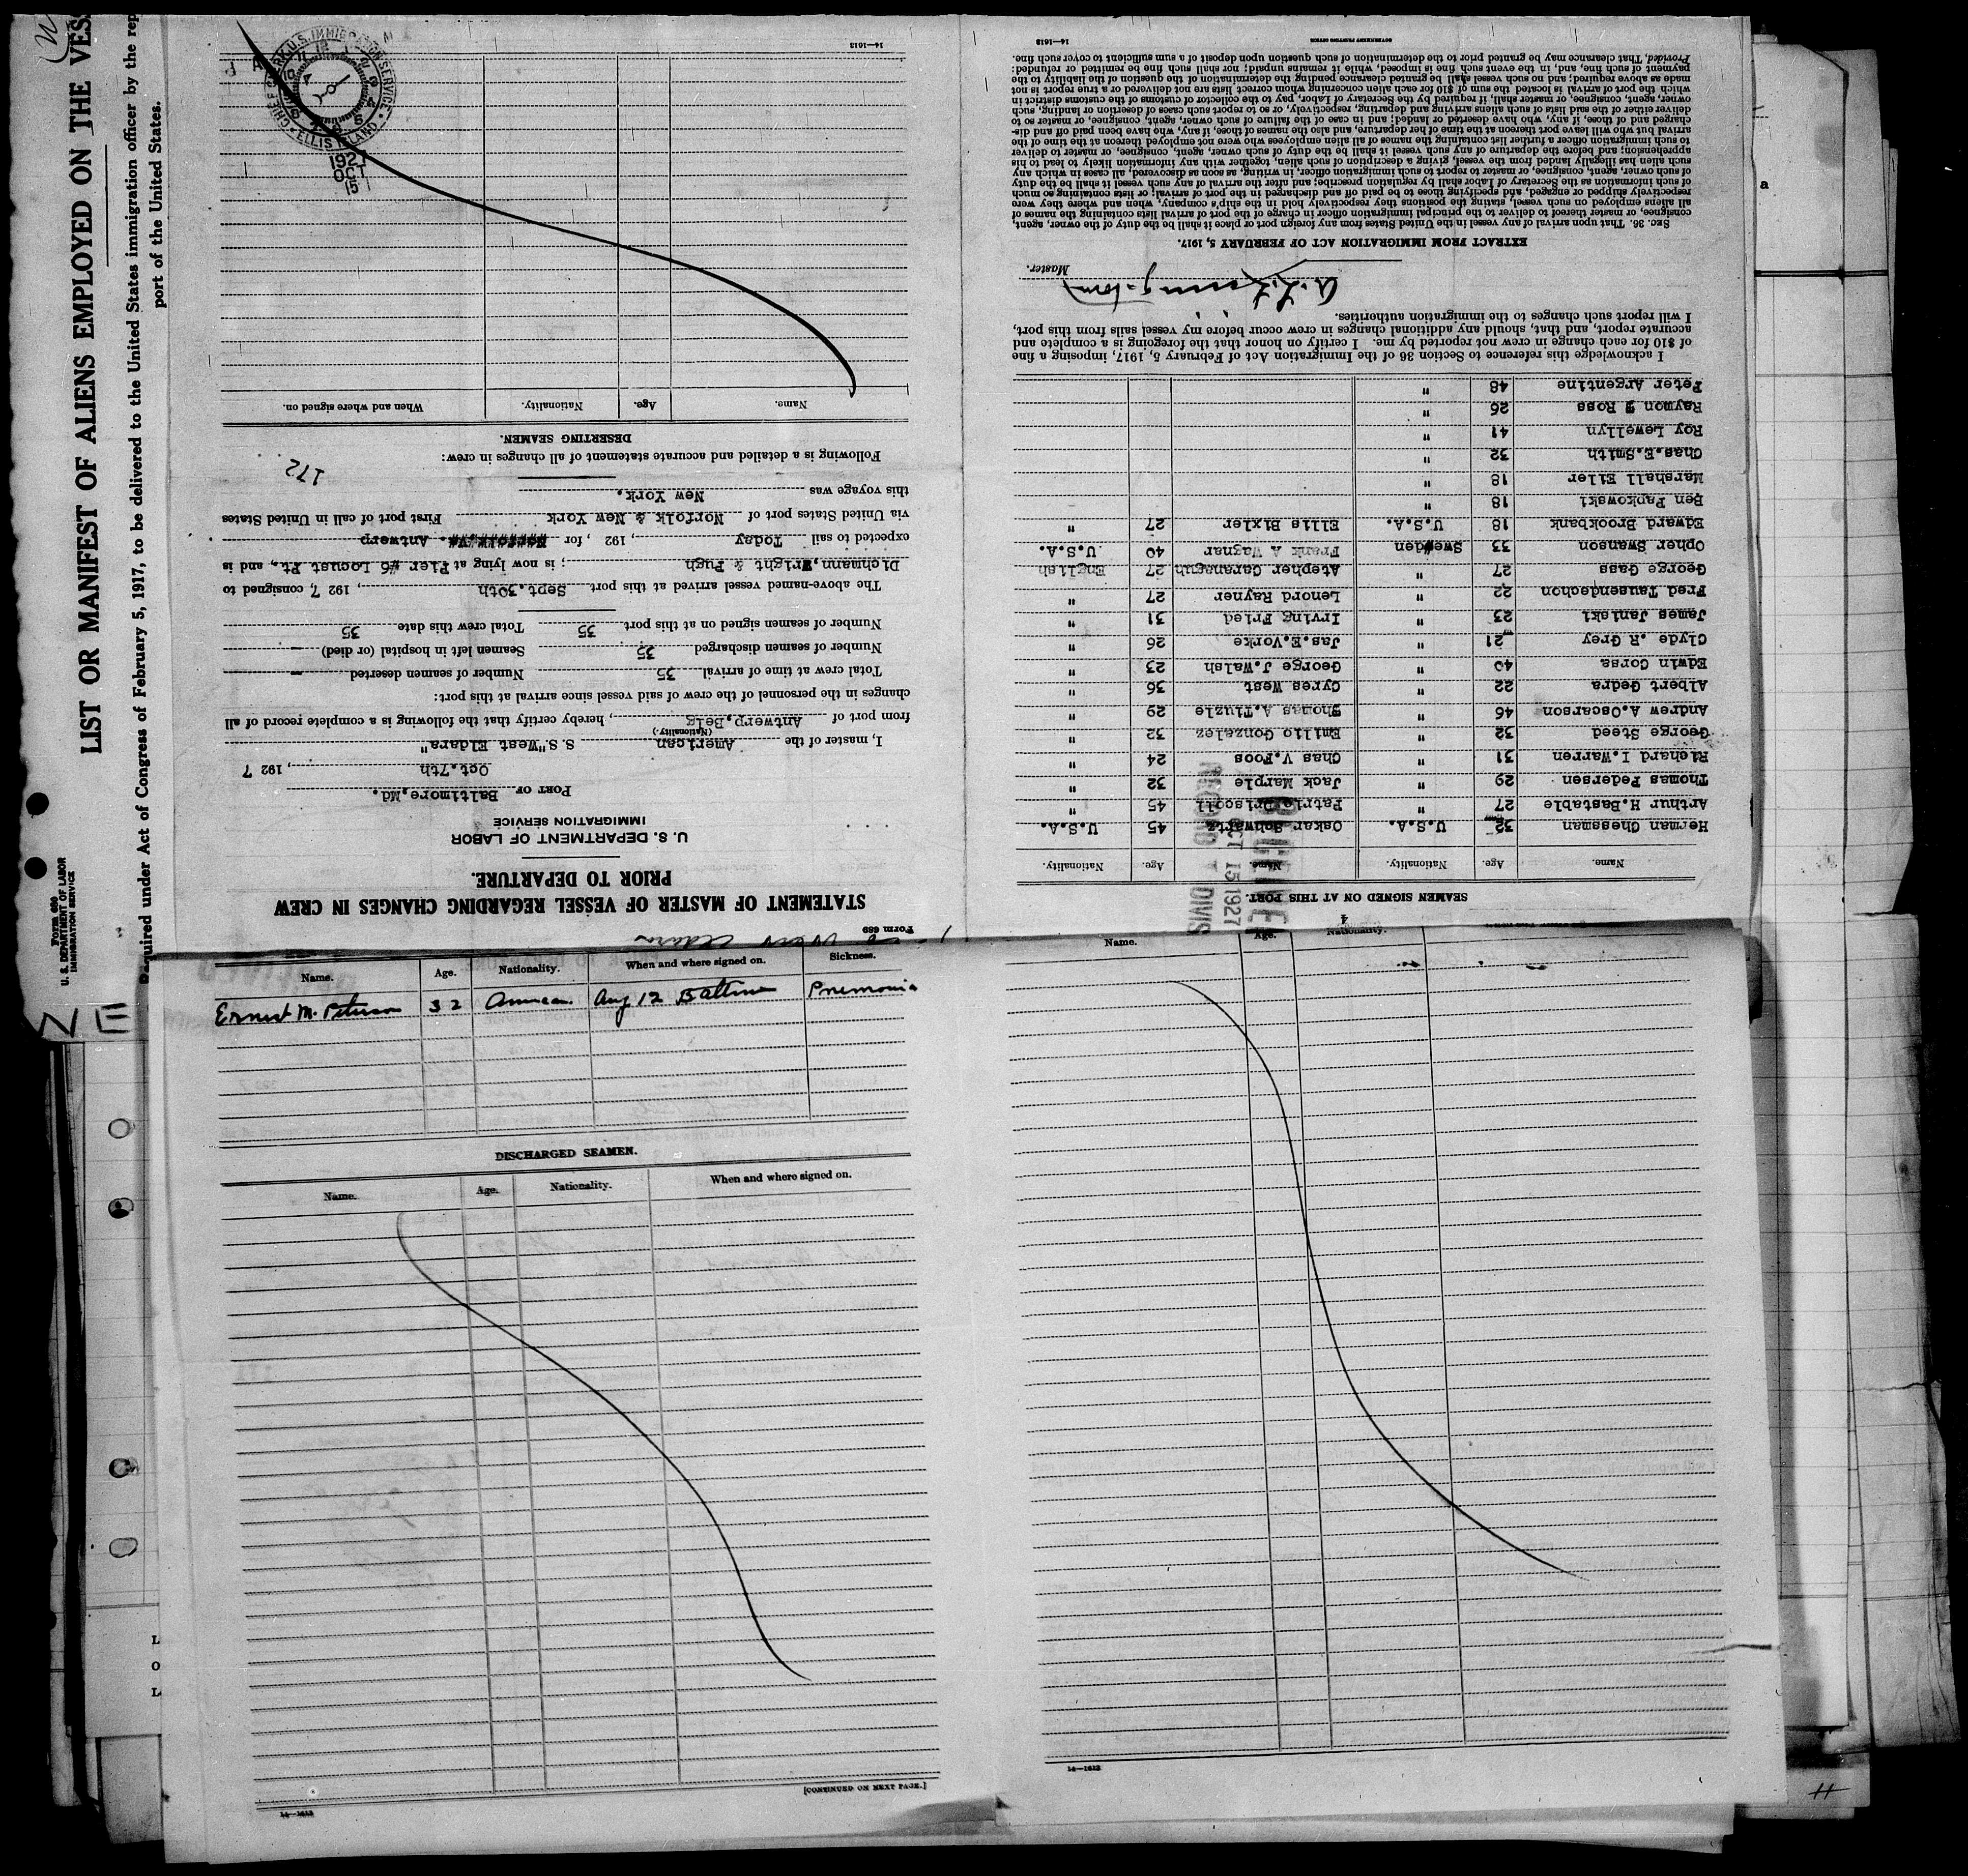 LIST OR MANIFEST OF ALIENS EMPLOYED ON THE VES
Required under Act of Congress of February 5, 1917, to be delivered to the United States immigration officer by the rep
port of the United States.
Form 689
U. S. DEPARTMENT OF LABOR
IMMIGRATION SERVICE
Form 689
STATEMENT OF MASTER OF VESSEL REGARDING CHANGES IN CREW
PRIOR TO DEPARTURE.
U. S. DEPARTMENT OF LABOR
IMMIGRATION SERVICE
PORT OF Baltimore,Md.
Oct.7th, 192 7
I, master of the American S.S."West Eldara"
(Nationality.)
from port of Antwerp.Belg, hereby certify that the following is a complete record of all
changes in the personnel of the crew of said vessel since arrival at this port:
Total crew at time of arrival 35 Number of seamen deserted -
Number of seamen discharged 35 Seamen left in hospital (or died) -
Number of seamen signed on at this port 35 Total crew this date 35
The above-named vessel arrived at this port Sept.30th, 192 7, consigned to
Dichmann,Wright & Pugh; is now lying at Pier #6 Locust Pt., and is
expected to sail Today, 192 , for Antwerp
via United States port of Norfolk & New York First port of call in United States
this voyage was New York.
172
Following is a detailed and accurate statement of all changes in crew:
DESERTING SEAMEN.
Name. Age. Nationality. When and where signed on.
CHIEF CLERK U.S. IMMIGRATION SERVICE
ELLIS ISLAND
1927
OCT
15
14—1613
SEAMEN SIGNED ON AT THIS PORT.
Name. Age. Nationality. Name. Age. Nationality.
Herman Chessman 32 U.S.A. Oskar Schwartz 45 U.S.A.
Arthur H.Bastable 27 " Patric Driscoll 45 "
Thomas Pedersen 29 " Jack Marple 32 "
Richard I.Warren 31 " Chas V.Foos 24 "
George Steed 32 " Emilio Gonzelez 32 "
Andrew A.Oscarson 46 " Thomas A.Tluzle 29 "
Albert Gedra 22 " Cyres West 36 "
Edwin Corsa 40 " George J.Walsh 23 "
Clyde .R Grey 21 " Jas.E.Yorke 26 "
James Janiski 23 " Irving Fried 31 "
Fred Tausendschon 22 " Lenord Rayner 27 "
George Gass 27 " Atepher Caranaguh 27 English
Opher Swanson 33 Sweden Frank A Wagnar 40 U.S.A.
Edward Brookbank 18 U.S.A. Ellis Bixler 27 "
Ben Papkowski 18 "
Marshall Eller 18 "
Chas.E.Smith 32 "
Roy Lewellyn 41 "
Raymon Ross 26 "
Peter Argentine 48 "
RECEIVED
OCT 15 1927
RECORD DIVIS
I acknowledge this reference to Section 36 of the Immigration Act of February 5, 1917, imposing a fine
of $10 for each change in crew not reported by me. I certify on honor that the foregoing is a complete and
accurate report, and that, should any additional changes in crew occur before my vessel sails from this port,
I will report such changes to the immigration authorities.
Master.
EXTRACT FROM IMMIGRATION ACT OF FEBRUARY 5, 1917.
SEC. 36. That upon arrival of any vessel in the United States from any foreign port or place it shall be the duty of the owner, agent,
consignee, or master thereof to deliver to the principal immigration officer in charge of the port of arrival lists containing the names of
all aliens employed on such vessel, stating the positions they respectively hold in the ship's company, when and where they were
respectively shipped or engaged, and specifying those to be paid off and discharged in the port of arrival; or lists containing so much
of such information as the Secretary of Labor shall by regulation prescribe; and after the arrival of any such vessel it shall be the duty
of such owner, agent, consignee, or master to report to such immigration officer, in writing, as soon as discovered, all cases in which any
such alien has illegally landed from the vessel, giving a description of such alien, together with any information likely to lead to his
apprehension; and before the departure of any such vessel it shall be the duty of such owner, agent, consignee, or master to deliver
to such immigration officer a further list containing the names of all alien employees who were not employed thereon at the time of the
arrival but who will leave port thereon at the time of her departure, and also the names of those, if any, who have been paid off and dis-
charged and of those, if any, who have deserted or landed; and in case of the failure of such owner, agent, consignee, or master so to
deliver either of the said lists of such aliens arriving and departing, respectively, or so to report such cases of desertion or landing, such
owner, agent, consignee, or master shall, if required by the Secretary of Labor, pay to the collector of customs of the customs district in
which the port of arrival is located the sum of $10 for each alien concerning whom correct lists are not delivered or a true report is not
made as above required; and no such vessel shall be granted clearance pending the determination of the question of the liability to the
payment of such fine, and, in the event such fine is imposed, while it remains unpaid; nor shall such fine be remitted or refunded:
Provided, That clearance may be granted prior to the determination of such question upon deposit of a sum sufficient to cover such fine.
14—1613 GOVERNMENT PRINTING OFFICE
Name. Age. Nationality. When and where signed on. Sickness.
Ernest M. Peterson 32 American Aug 12 Baltimore Pnemonia
DISCHARGED SEAMEN.
Name. Age. Nationality. When and where signed on.
[CONTINUED ON NEXT PAGE.]
14—1613
Name. Age. Nationality.
14—1613